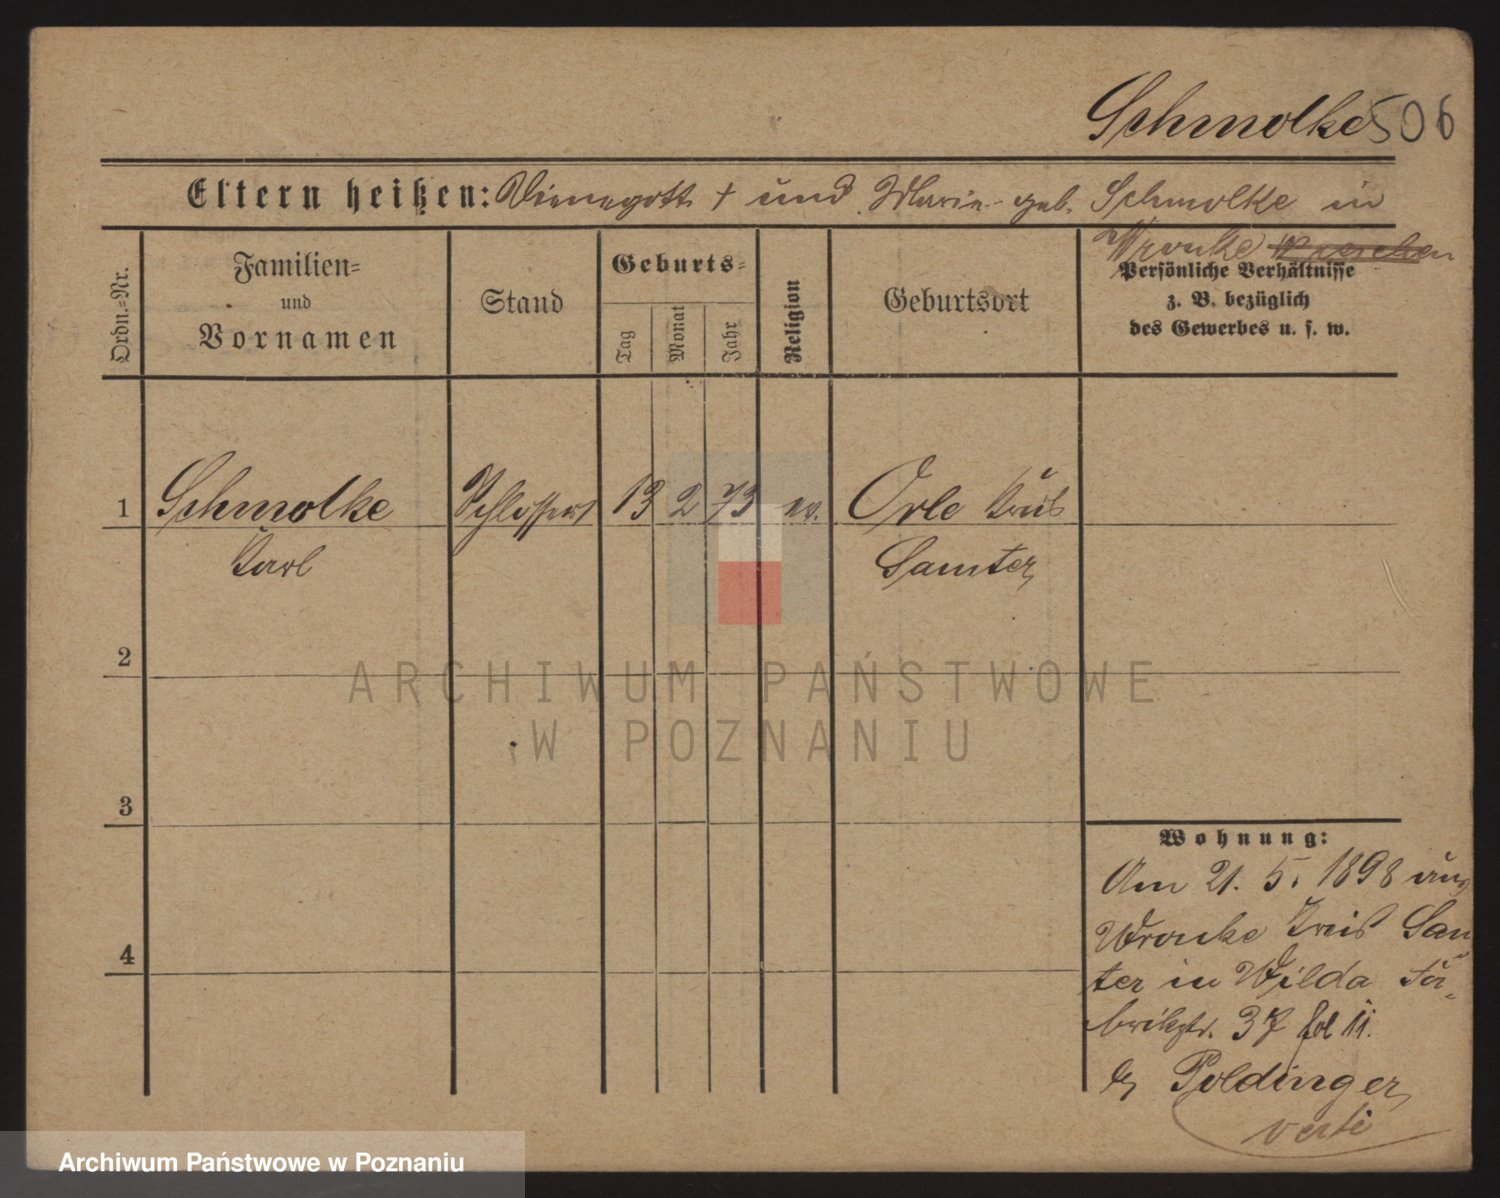 Schmolke 506
Eltern heißen: Dienegott † und Marie geb. Schmolke in
Wronke
Ordn.-Nr.
Familien-
und
Vornamen
Stand
Geburts-
Tag
Monat
Jahr
Religion
Geburtsort
Persönliche Verhältnisse
z. B. bezüglich
des Gewerbes u. s. w.
1 Schmolke Schlosser 13 2 73 ev. Orle Kreis
Karl Samter
2
3
4
Wohnung:
Am 21. 5. 1898 aus
Wronke Kreis Sam
ter in Wilda Fa-
brikstr. 37 II.
b. Poldinger
verte
ARCHIWUM PAŃSTWOWE
W POZNANIU
Archiwum Państwowe w Poznaniu